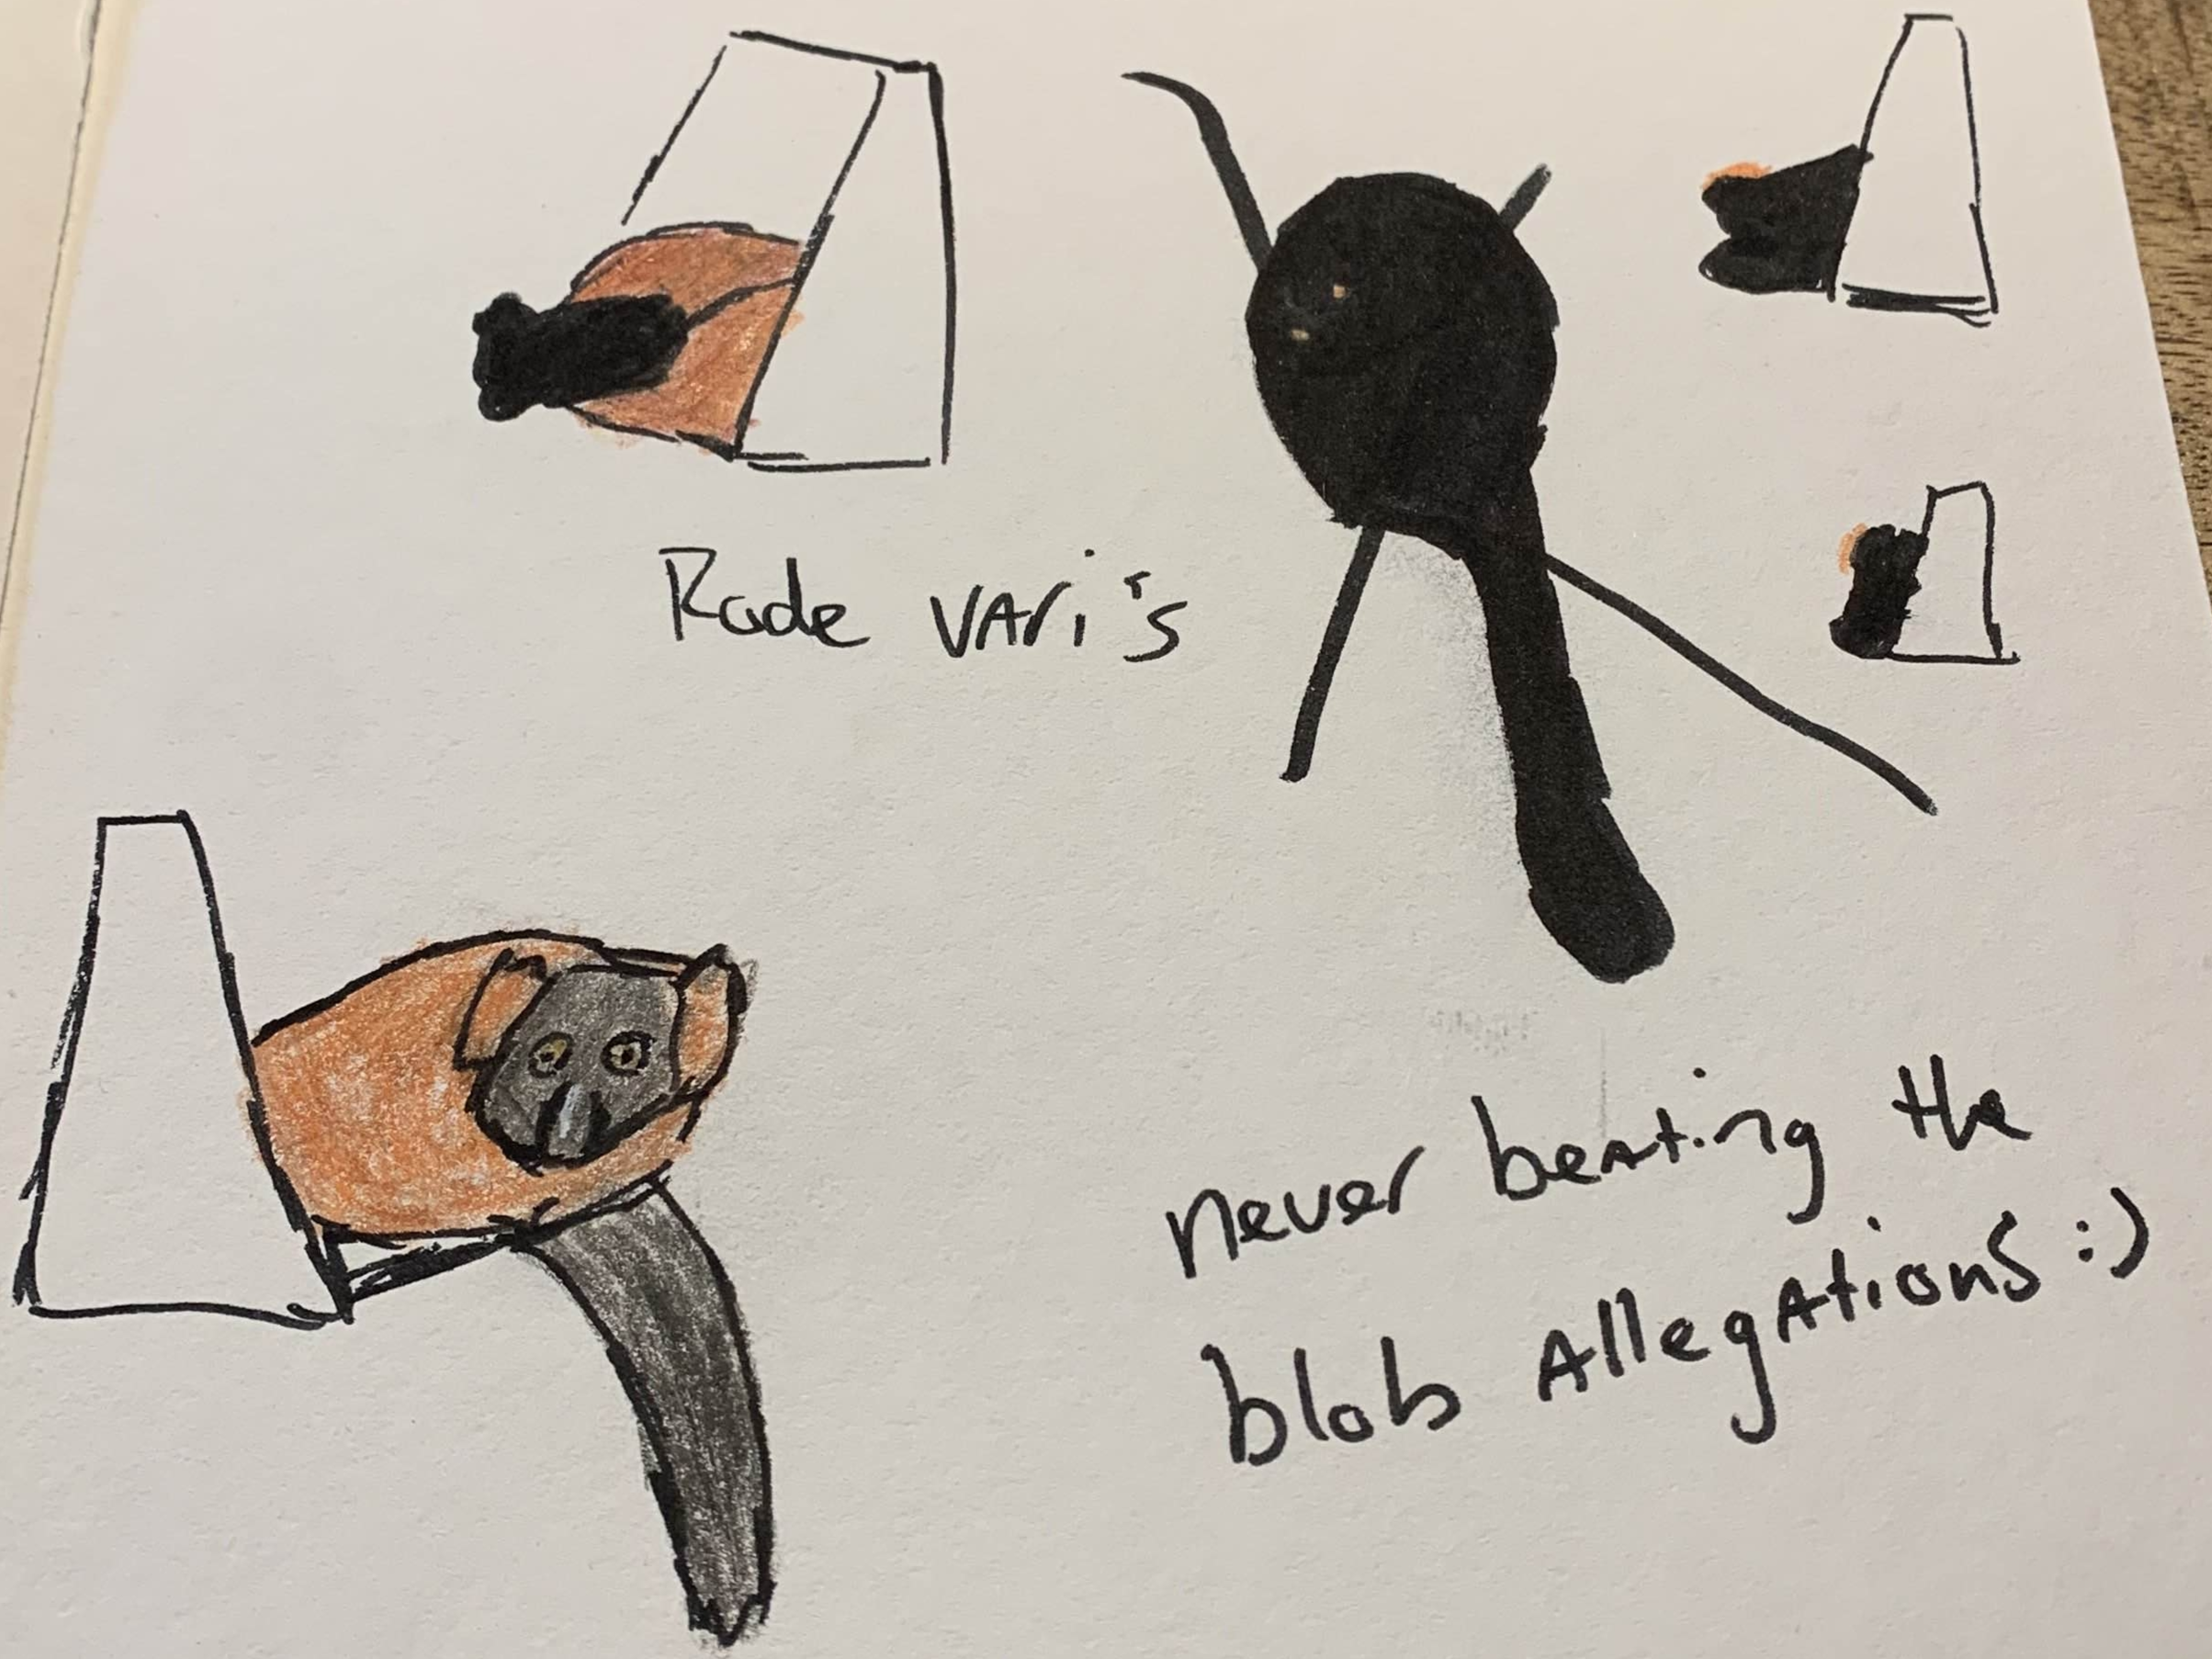 Rode vari's
never beating the
blob Allegations :)